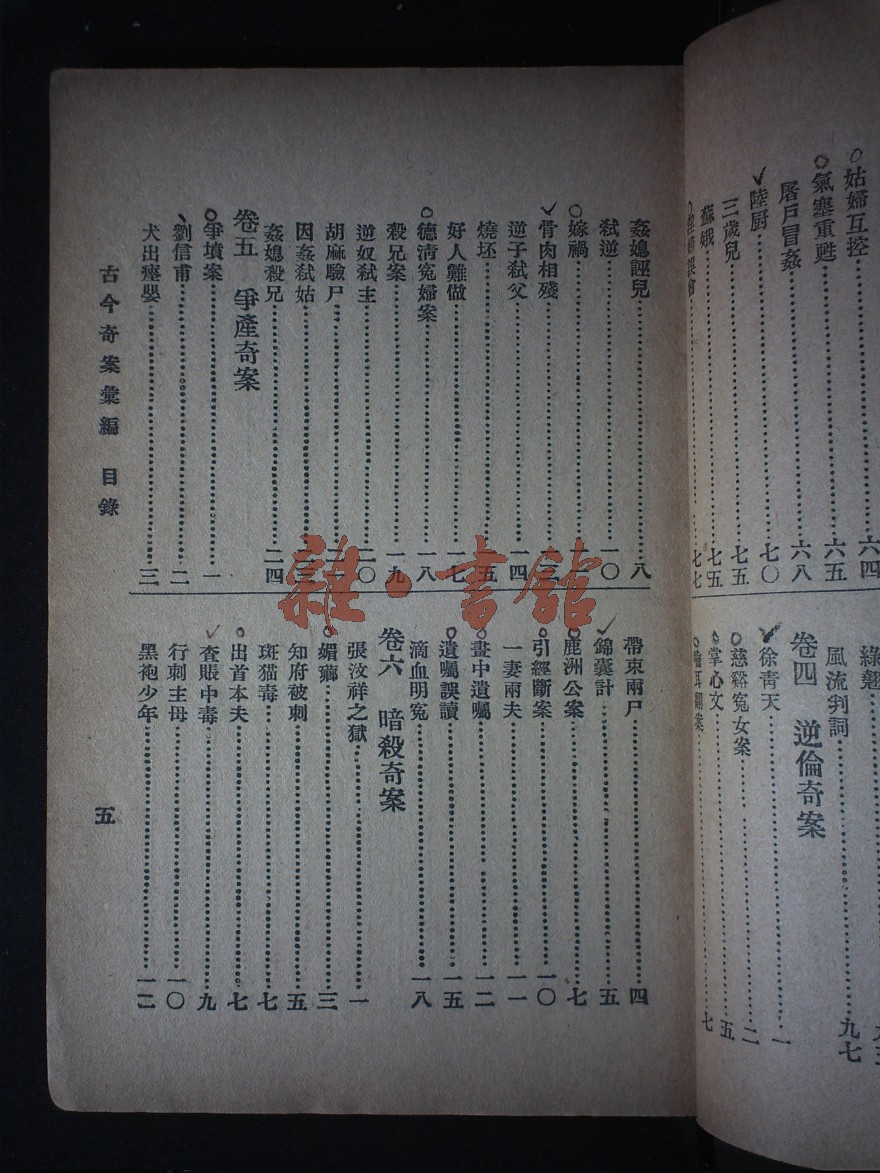 姑婦互控……六四
氣塞重甦……六五
屠戶冒姦……六八
陸廚……七〇
三歲兒……七五
蘇娥……七五
七七
綠翹
風流判詞……九七
卷四 逆倫奇案
徐青天……一
慈谿冤女案……二
掌心文……五
案……七
姦媳誣兒……八
弒逆……一〇
嫁禍
骨肉相殘
逆子弒父……一四
燒坯……一五
好人難做……一七
德清冤婦案……一八
殺兄案……一九
逆奴弒主……二〇
胡麻驗尸
因姦弒姑
姦媳殺兄……二四
卷五 爭產奇案
爭墳案……一
劉信甫……二
犬出瘞嬰……三
帶束兩尸……四
錦囊計……五
鹿洲公案……七
引經斷案……一〇
一妻兩夫……一一
畫中遺囑……一二
遺囑誤讀……一五
滴血明冤……一八
卷六 暗殺奇案
張汶祥之獄……一
媚藥……三
知府被刺……五
斑猫毒……七
出首本夫……七
查賬中毒……九
行刺主母……一〇
黑袍少年……一二
古今奇案彙編 目錄
五
雜·書館